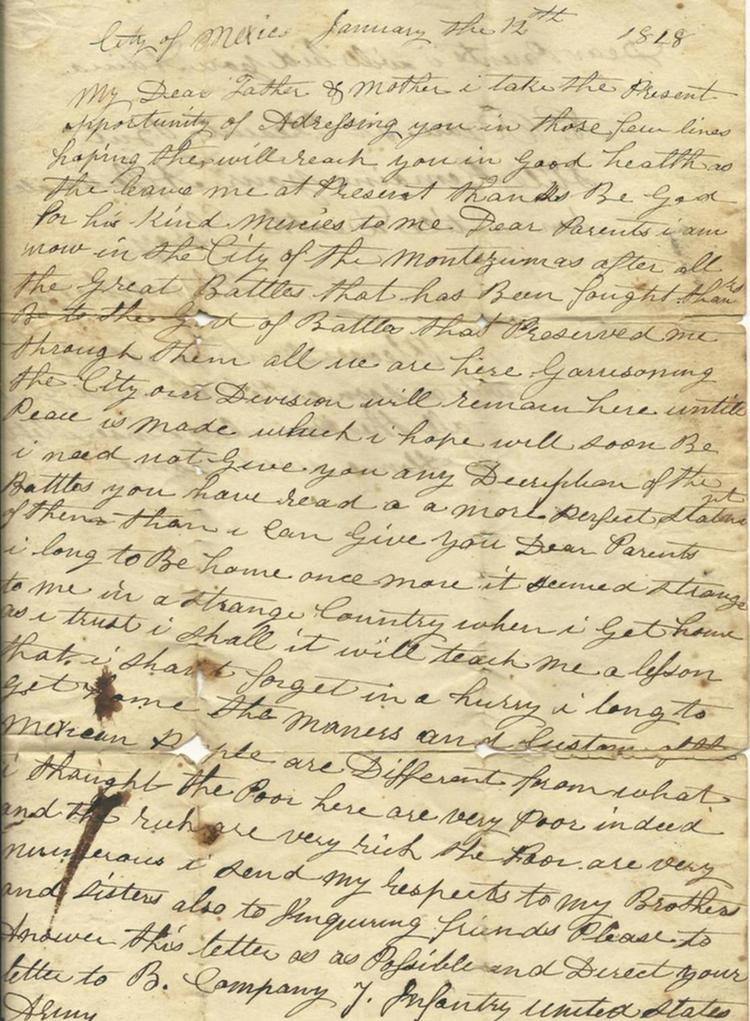 City of Mexico January the 12th 1848
My Dear Father & Mother i take the Present
opportunity of Adressing you in those few lines
hoping the will reach you in Good health as
the leave me at Present thanks Be God
for his Kind Mercies to me Dear Parents i am
now in the City of the Montezumas after all
the Great Battles that has Been fought thanks
Be to the God of Battles that Preserved me
through them all we are here Garrisoning
the City our Division will remain here untill
Peace is made which i hope will soon Be
i need not Give you any Decription of the
Battles you have read a a more Perfect
of them than i Can Give you Dear Parents
i long to Be home once more it seemed strange
to me in a strange Country when i Get home
as i trust i shall it will teach me a lesson
that i shant forget in a hurry i long to
get home the Maners and Custom of the
Mexican People are Different from what
i thought the Poor here are very Poor indeed
and the rich are very rich the Poor are very
numerous i send my respects to my Brothers
and sisters also to Inquiring friends Please to
Answer this letter as as Possible and Direct your
letter to B. Company 7. Infantry United States
Army